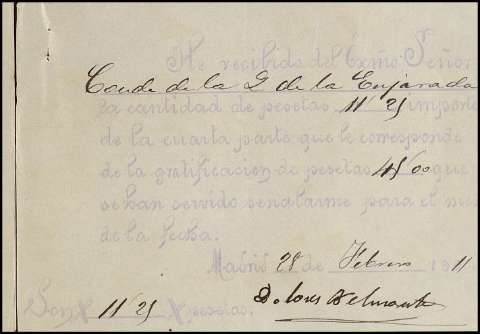 He recibido del Exmo. Señor
Conde de la Q de la Enjarada
la cantidad de pesetas 11'25 importe
de la cuarta parte que le corresponde
de la gratificacion de pesetas 45'00 que
se han servido señalarme para el mes
de la fecha.
Madrid 28 de Febrero 1911
Son 11'25 pesetas.
Dolores